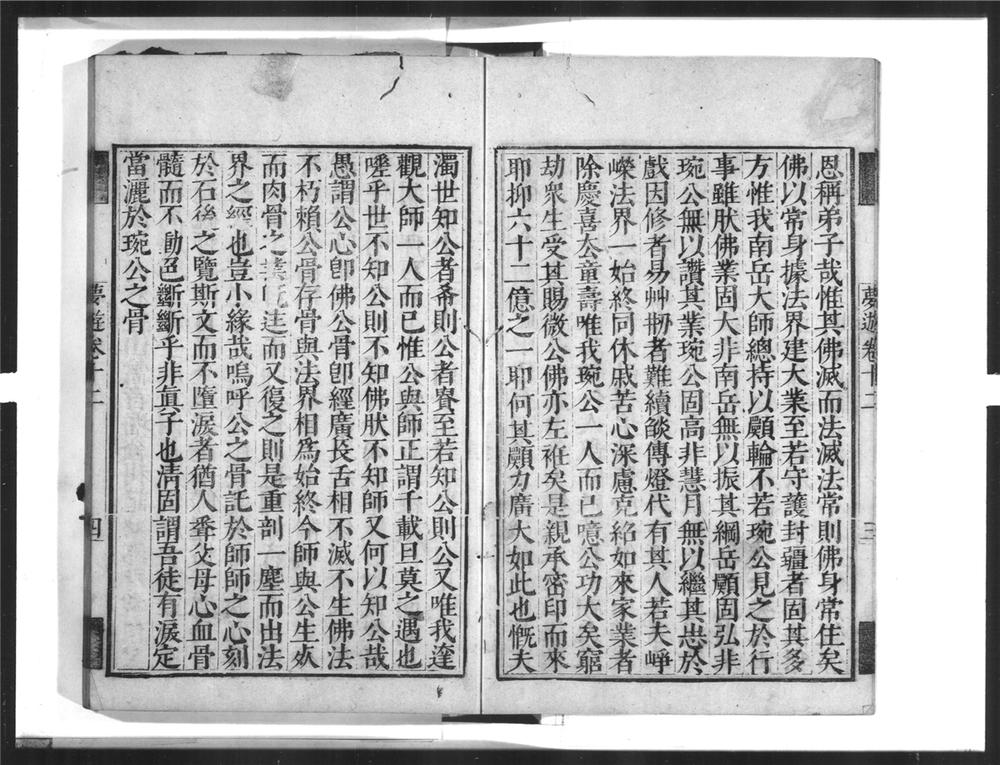 恩稱弟子哉惟其佛滅而法滅法常則佛身常住矣
佛以常身據法界建大業至若守護封疆者固其多
方惟我南岳大師總持以願輪不若琬公見之於行
事雖肰佛業固大非南岳無以振其綱岳願固弘非
琬公無以讚其業琬公固高非慧月無以繼其𢙇於
戲因修者易艸刱者難續燄傳燈代有其人若夫崢
嶸法界一始終同休戚苦心深慮克紹如來家業者
除慶喜厺童壽唯我琬公一人而已噫公功大矣窮
劫衆生受其賜微公佛亦左袵矣是親承密印而來
耶抑六十二億之一耶何其願力廣大如此也慨夫
夢遊卷十二
三
濁世知公者希則公者賚至若知公則公又唯我達
觀大師一人而已惟公與師正謂千載旦莫之遇也
嗟乎世不知公則不知佛狀不知師又何以知公哉
愚謂公心卽佛公骨卽經廣長舌相不滅不生佛法
不朽賴公骨存骨與法界相爲始終今師與公生
而肉骨之業旣迬而又復之則是重剖一塵而出法
界之經也豈小緣哉嗚呼公之骨託於師師之心刻
於石後之覽斯文而不墮淚者猶人聋父母心血骨
髓而不動色斷斷乎非眞子也淸固謂吾徒有淚定
當灑於琬公之骨
夢遊卷十二
四